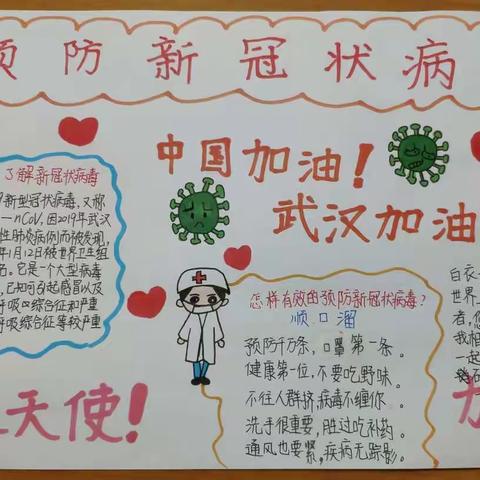 预防新冠状病
中国加油!
武汉加油
了解新冠状病毒
新型冠状病毒,又称
—nCoV,因2019年武汉
性肺炎病例而被发现,
年1月12日被世界卫生组
名。它是一个大型病毒
,已知可引起感冒以及
呼吸综合征和严重
呼吸综合征等较严重
怎样有效的预防新冠状病毒?
顺口溜
预防千万条,口罩第一条。
健康第一位,不要吃野味。
不往人群挤,病毒不缠你。
洗手很重要,胜过吃补药。
通风也要紧,疾病无踪影。
白衣
世界
者,您
我相
一起
天使!